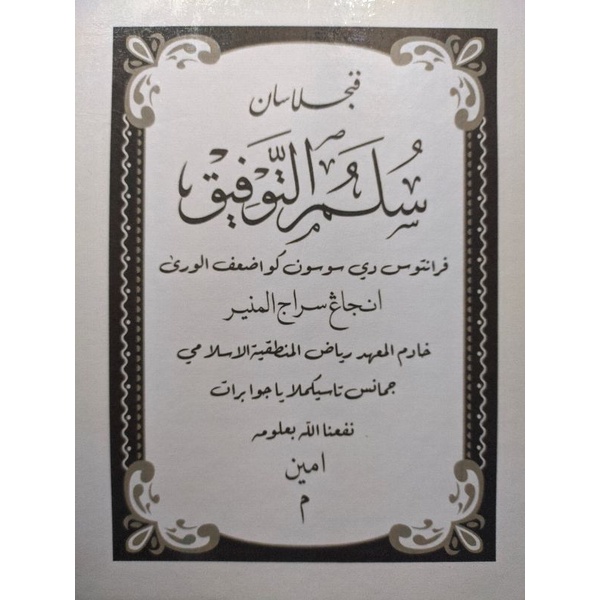 فنجلاسان
سُلَّمُ التَّوْفِيْق
فرانتوس دي سوسون كو اضعف الورى
انجاڠ سراج المنير
خادم المعهد رياض المنطقية الاسلامي
جمانس تاسيكملايا جوا برات
نفعنا الله بعلومه
امين
م